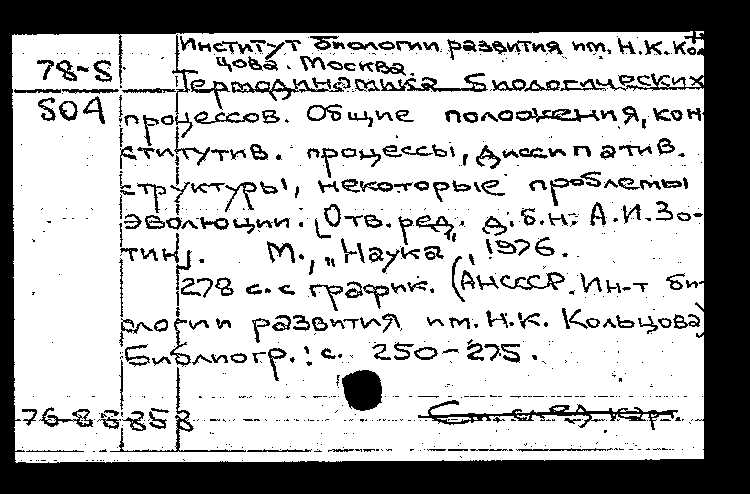 Институт биологии развития им. Н.К. Коль
цова. Москва.
78-5
Термодинамика биологических
504
процессов. Общие положения, кон-
ститутив. процессы, диссипатив.
структуры, некоторые проблемы
эволюции. [Отв. ред. д.б.н. А.И. Зо-
тин]. М., „Наука“, 1976.
278 с. с график. (АНСССР. Ин-т би-
ологии развития им. Н.К. Кольцова)
Библиогр.: с. 250-275.
76-88858
См. след карт.